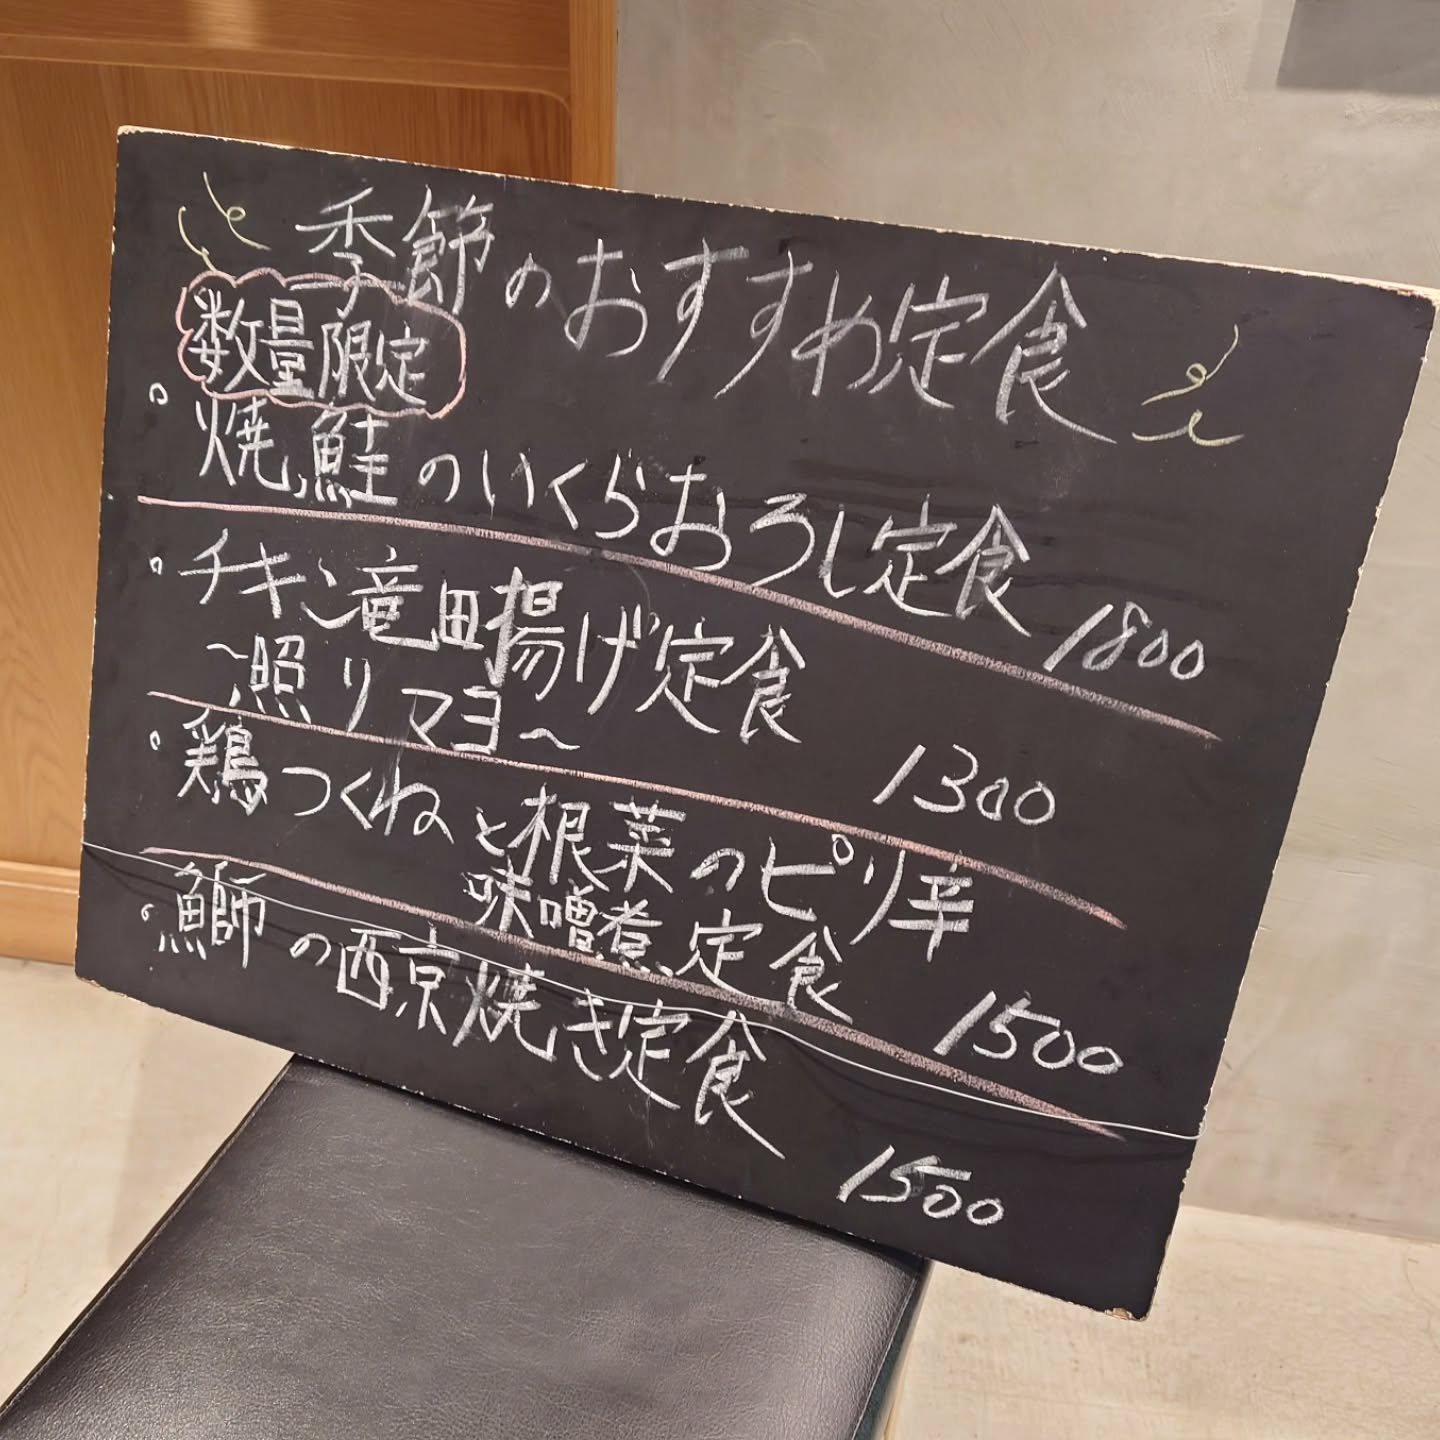 季節のおすすめ定食
数量限定
。焼鮭のいくらおろし定食 1800
。チキン竜田揚げ定食
〜照リマヨ〜 1300
。鶏つくねと根菜のピリ辛
味噌煮定食 1500
。鰤の西京焼き定食
1500